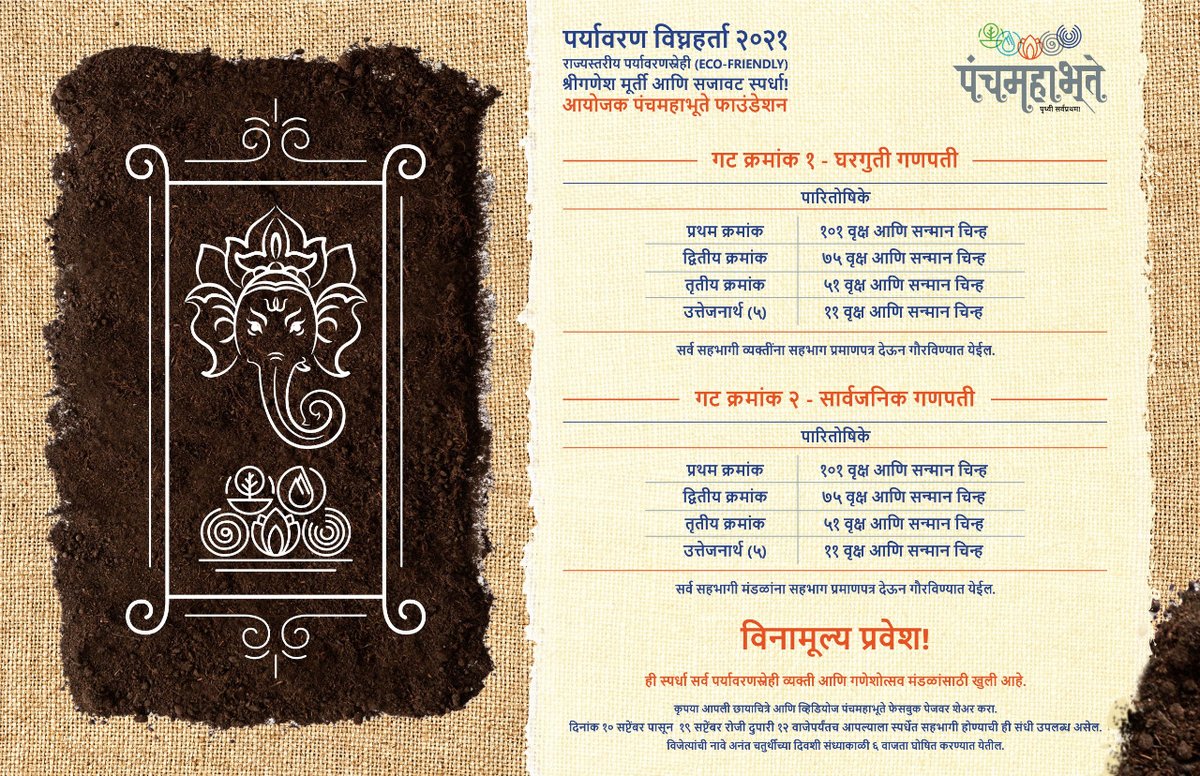 पर्यावरण विघ्नहर्ता २०२१
राज्यस्तरीय पर्यावरणस्नेही (ECO-FRIENDLY)
श्रीगणेश मूर्ती आणि सजावट स्पर्धा!
आयोजक पंचमहाभूते फाउंडेशन
पंचमहाभूते
पृथ्वी सर्वप्रथम!
गट क्रमांक १ - घरगुती गणपती
पारितोषिके
प्रथम क्रमांक १०१ वृक्ष आणि सन्मान चिन्ह
द्वितीय क्रमांक ७५ वृक्ष आणि सन्मान चिन्ह
तृतीय क्रमांक ५१ वृक्ष आणि सन्मान चिन्ह
उत्तेजनार्थ (५) ११ वृक्ष आणि सन्मान चिन्ह
सर्व सहभागी व्यक्तींना सहभाग प्रमाणपत्र देऊन गौरविण्यात येईल.
गट क्रमांक २ - सार्वजनिक गणपती
पारितोषिके
प्रथम क्रमांक १०१ वृक्ष आणि सन्मान चिन्ह
द्वितीय क्रमांक ७५ वृक्ष आणि सन्मान चिन्ह
तृतीय क्रमांक ५१ वृक्ष आणि सन्मान चिन्ह
उत्तेजनार्थ (५) ११ वृक्ष आणि सन्मान चिन्ह
सर्व सहभागी मंडळांना सहभाग प्रमाणपत्र देऊन गौरविण्यात येईल.
विनामूल्य प्रवेश!
ही स्पर्धा सर्व पर्यावरणस्नेही व्यक्ती आणि गणेशोत्सव मंडळांसाठी खुली आहे.
कृपया आपली छायाचित्रे आणि व्हिडियोज पंचमहाभूते फेसबुक पेजवर शेअर करा.
दिनांक १० सप्टेंबर पासून १९ सप्टेंबर रोजी दुपारी १२ वाजेपर्यंतच आपल्याला स्पर्धेत सहभागी होण्याची ही संधी उपलब्ध असेल.
विजेत्यांची नावे अनंत चतुर्थीच्या दिवशी संध्याकाळी ६ वाजता घोषित करण्यात येतील.